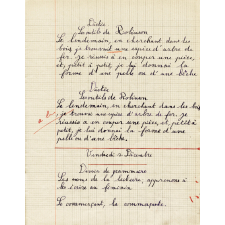 Dictée
L'outil de Robinson
Le lendemain, en cherchant dans les
bois je trouvai une espèce d'arbre de
fer. Je réussis à en couper une pièce,
et, petit à petit, je lui donnai la
forme d'une pelle ou d'une bêche
Dictée
L'outil de Robinson
Le lendemain, en cherchant dans les bois
je trouvai une espèce d'arbre de fer. je
réussis à en couper une pièce, et, petit à
petit, je lui donnai la forme d'une
pelle ou d'une bêche.
Vendredi 2 Décembre
Devoir de grammaire
Les noms de la lecture, apprenons à
les écrire au féminin
Le commerçant, la commerçante.